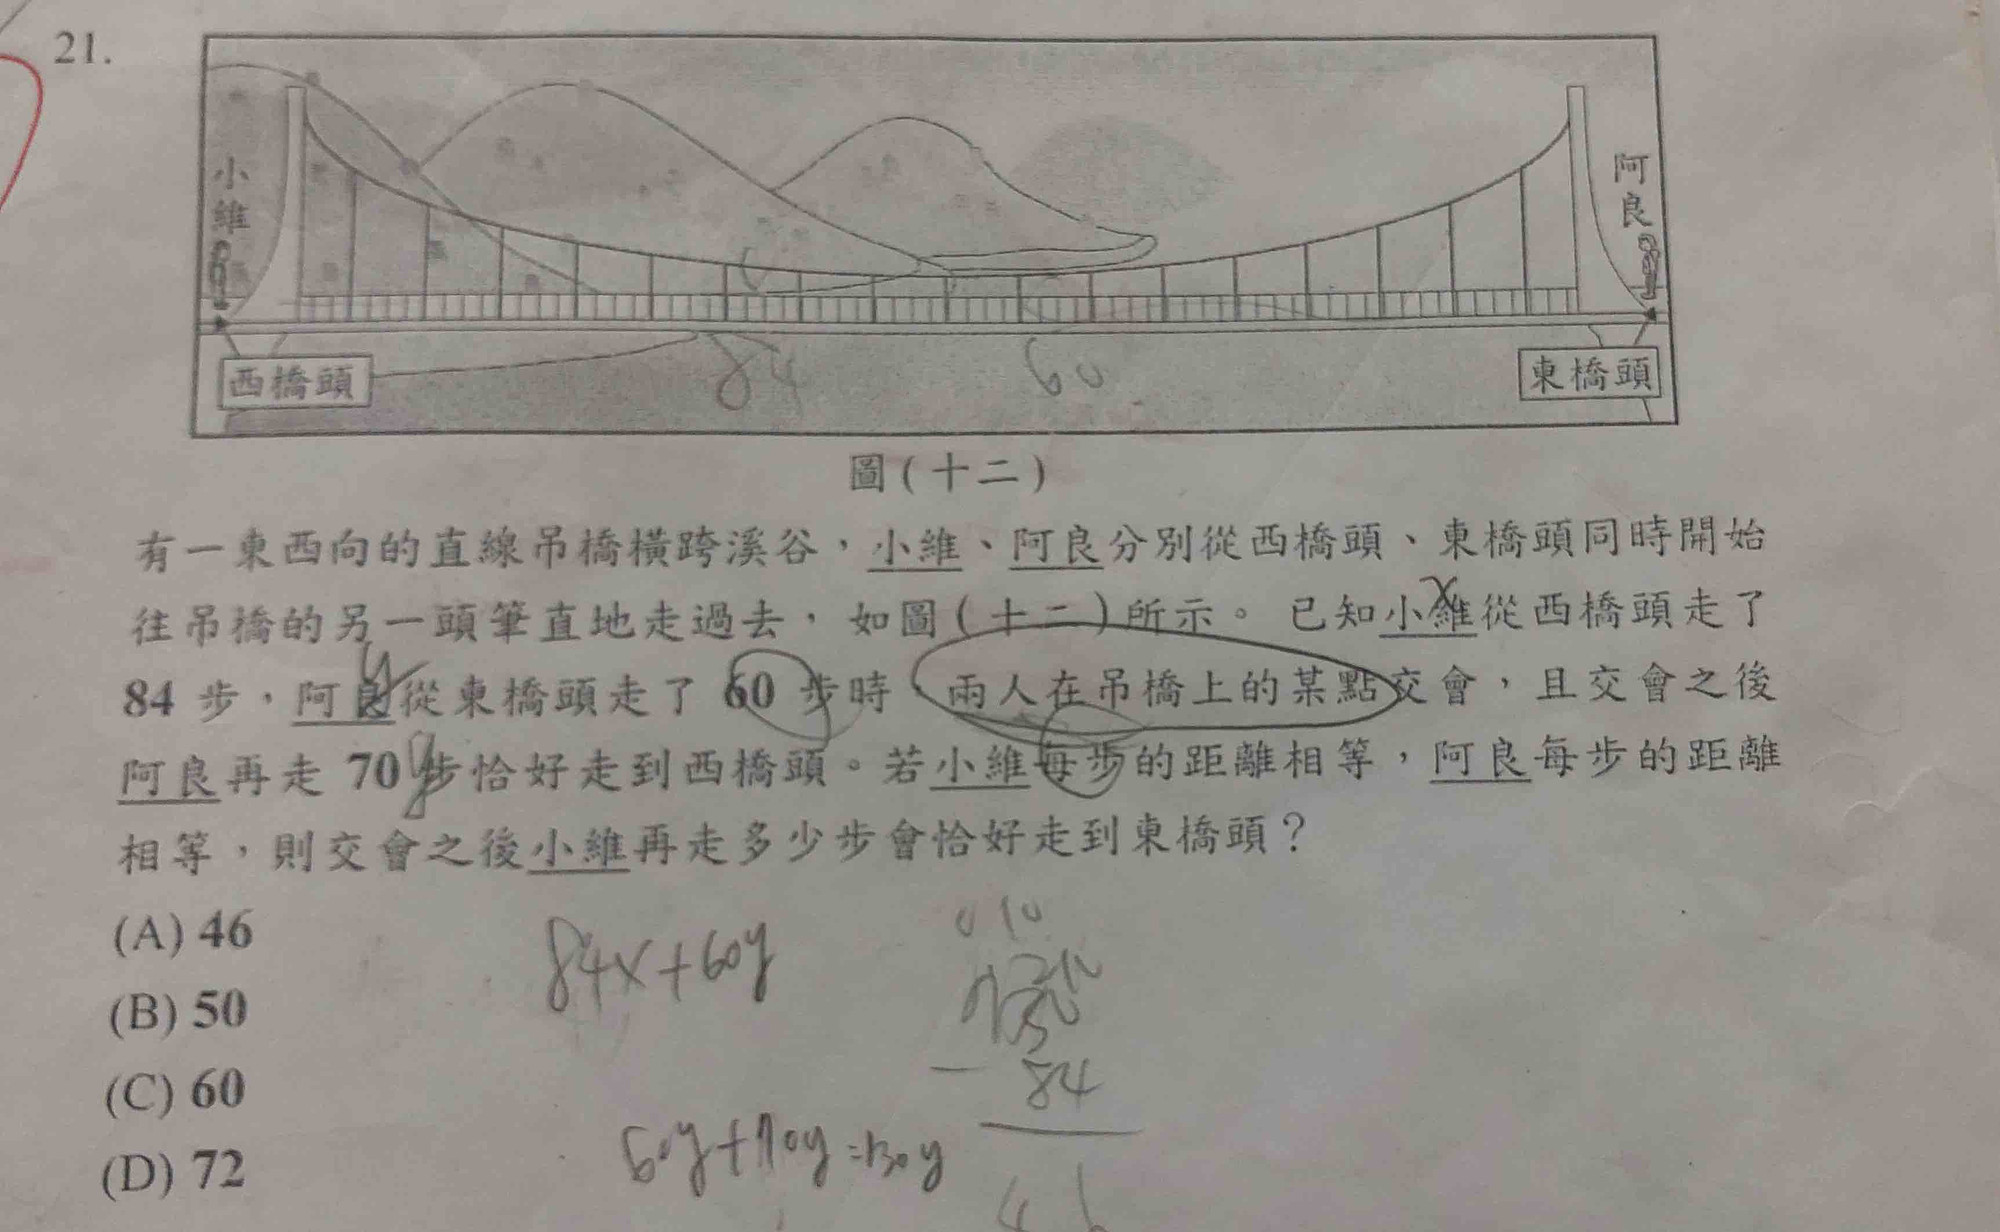 21.
小維
阿良
西橋頭
84
60
東橋頭
圖(十二)
有一東西向的直線吊橋橫跨溪谷,小維、阿良分別從西橋頭、東橋頭同時開始
往吊橋的另一頭筆直地走過去,如圖(十二)所示。已知小維從西橋頭走了
x
84 步,阿良從東橋頭走了 60 步時,兩人在吊橋上的某點交會,且交會之後
y
阿良再走 70 步恰好走到西橋頭。若小維每步的距離相等,阿良每步的距離
y
相等,則交會之後小維再走多少步會恰好走到東橋頭?
(A) 46
(B) 50
(C) 60
(D) 72
84x+60y
- 84
60y+70y=130y